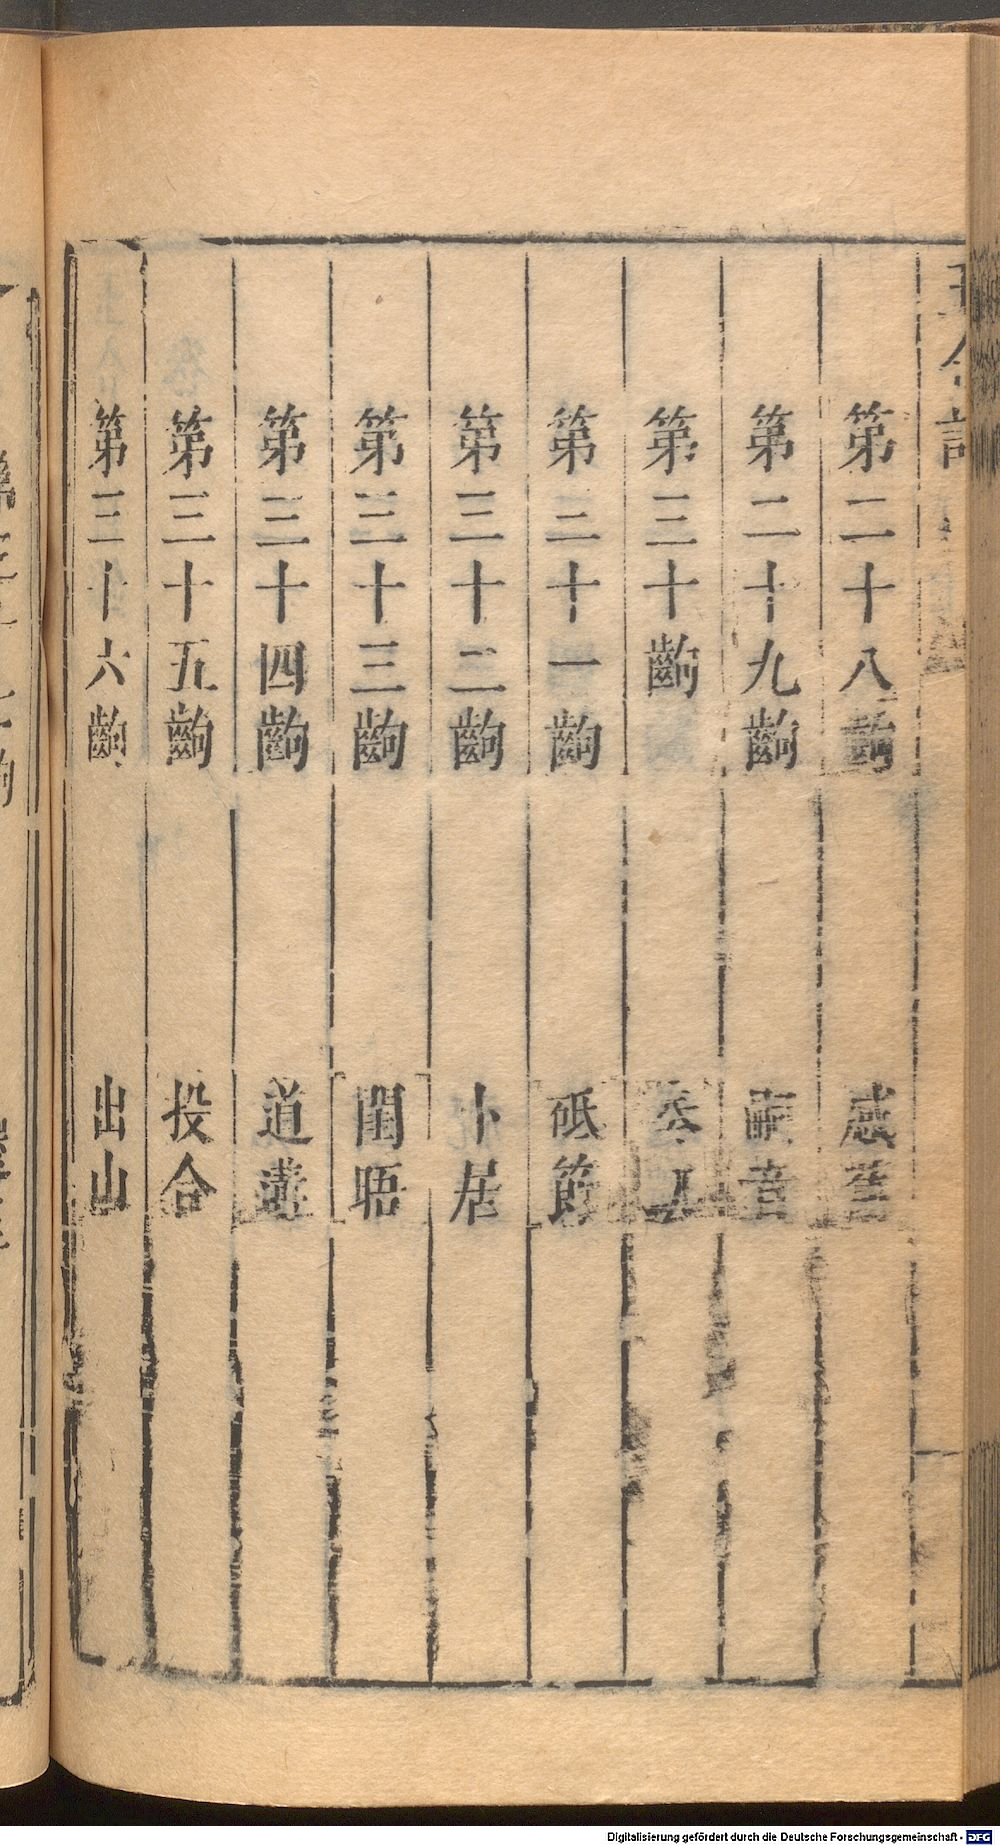 第二十八齣 感舊
第二十九齣 嗣音
第三十齣
第三十一齣 砥節
第三十二齣 卜居
第三十三齣 閨晤
第三十四齣 道遘
第三十五齣 投合
第三十六齣 出山
Digitalisierung gefördert durch die Deutsche Forschungsgemeinschaft - DFG